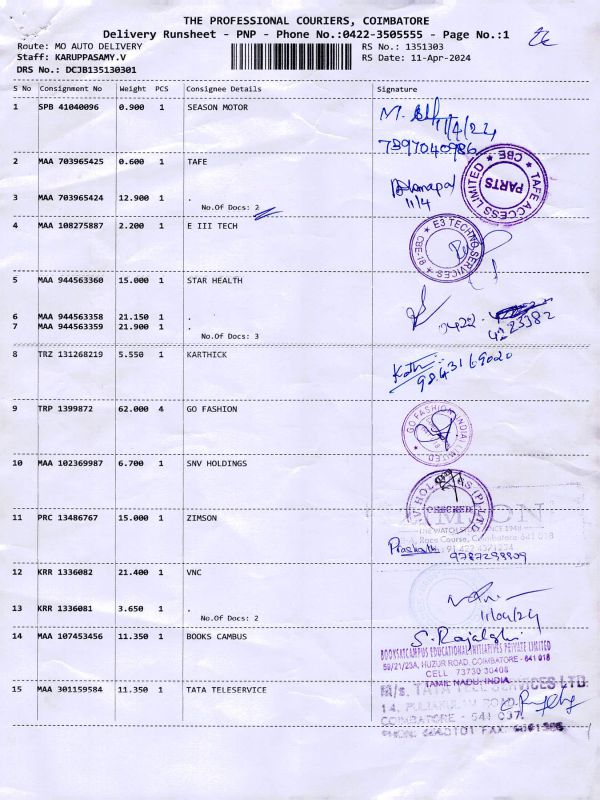 THE PROFESSIONAL COURIERS, COIMBATORE
Delivery Runsheet - PNP - Phone No.:0422-3505555 - Page No.:1
Route: MO AUTO DELIVERY RS No.: 1351303
Staff: KARUPPASAMY.V RS Date: 11-Apr-2024
DRS No.: DCJB135130301
S No Consignment No Weight PCS Consignee Details Signature
1 SPB 41040096 0.900 1 SEASON MOTOR
11/4/24
7397040986
2 MAA 703965425 0.600 1 TAFE
TAFE ACCESS LIMITED
PARTS
CBE
3 MAA 703965424 12.900 1 .
11/4
No.Of Docs: 2
4 MAA 108275887 2.200 1 E III TECH
E3 TECHNO SERVICES
CBE-18
5 MAA 944563360 15.000 1 STAR HEALTH
6 MAA 944563358 21.150 1 .
7 MAA 944563359 21.900 1 .
0422
4223382
No.Of Docs: 3
8 TRZ 131268219 5.550 1 KARTHICK
98431 69020
9 TRP 1399872 62.000 4 GO FASHION
GO FASHION (INDIA) LIMITED
10 MAA 102369987 6.700 1 SNV HOLDINGS
CHECKED
11 PRC 13486767 15.000 1 ZIMSON
Race Course, Coimbatore-641 018
Prashanth
9787299809
12 KRR 1336082 21.400 1 VNC
13 KRR 1336081 3.650 1 .
11/04/24
No.Of Docs: 2
14 MAA 107453456 11.350 1 BOOKS CAMBUS
S. Rajalakshmi
BOOKSATCAMPUS EDUCATIONAL INITIATIVES PRIVATE LIMITED
59/21/23A, HUZUR ROAD, COIMBATORE - 641 018
CELL 73730 30408
TAMIL NADU, INDIA.
15 MAA 301159584 11.350 1 TATA TELESERVICE
M/s. TATA TELE SERVICES LTD
14, PULIAKULAM ROAD
COIMBATORE - 641 037.